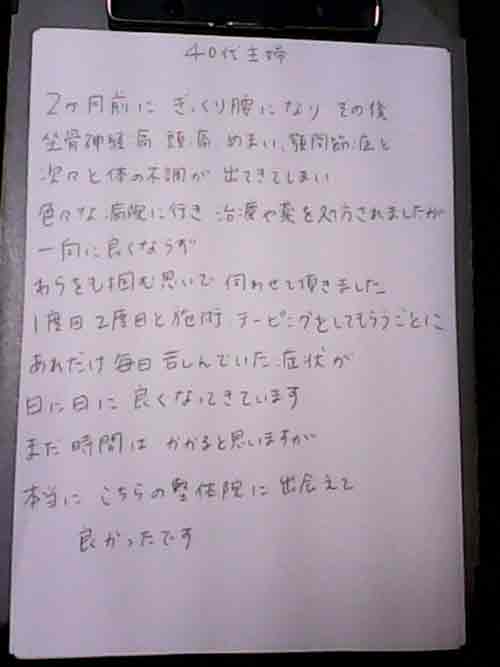 40代主婦
2ヶ月前に ぎっくり腰になり その後
坐骨神経痛 頭痛 めまい、顎関節症と
次々と体の不調が 出てきてしまい
色々な病院に行き 治療や薬を処方されましたが
一向に良くならず
わらをも掴む思いで 伺わせて頂きました
1度目 2度目と施術 テーピングをしてもらうごとに
あれだけ毎日苦しんでいた症状が
日に日に 良くなってきています
まだ 時間は かかると思いますが
本当に こちらの整体院に 出会えて
良かったです